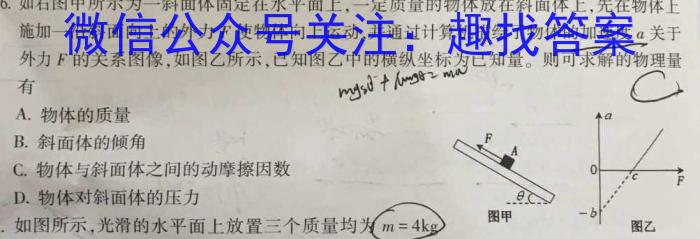 6. 如右图中所示为一斜面体固定在水平面上,一定质量的物体放在斜面体上,先在物体上
施加一 外力F使物体向上运动, 并通过计算 物体的加速度a关于
微信公众号关注:趣找答案
外力F的关系图像,如图乙所示,已知图乙中的横纵坐标为已知量。则可求解的物理量
有
A. 物体的质量
B. 斜面体的倾角
C. 物体与斜面体之间的动摩擦因数
D. 物体对斜面体的压力
C
F
A
θ
图甲
a
0
c
F
-b
图乙
. 如图所示,光滑的水平面上放置三个质量均为m=4kg